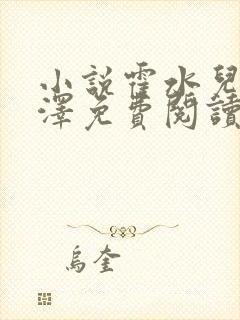 小說霍水兒
澤免費閱讀
烏奎